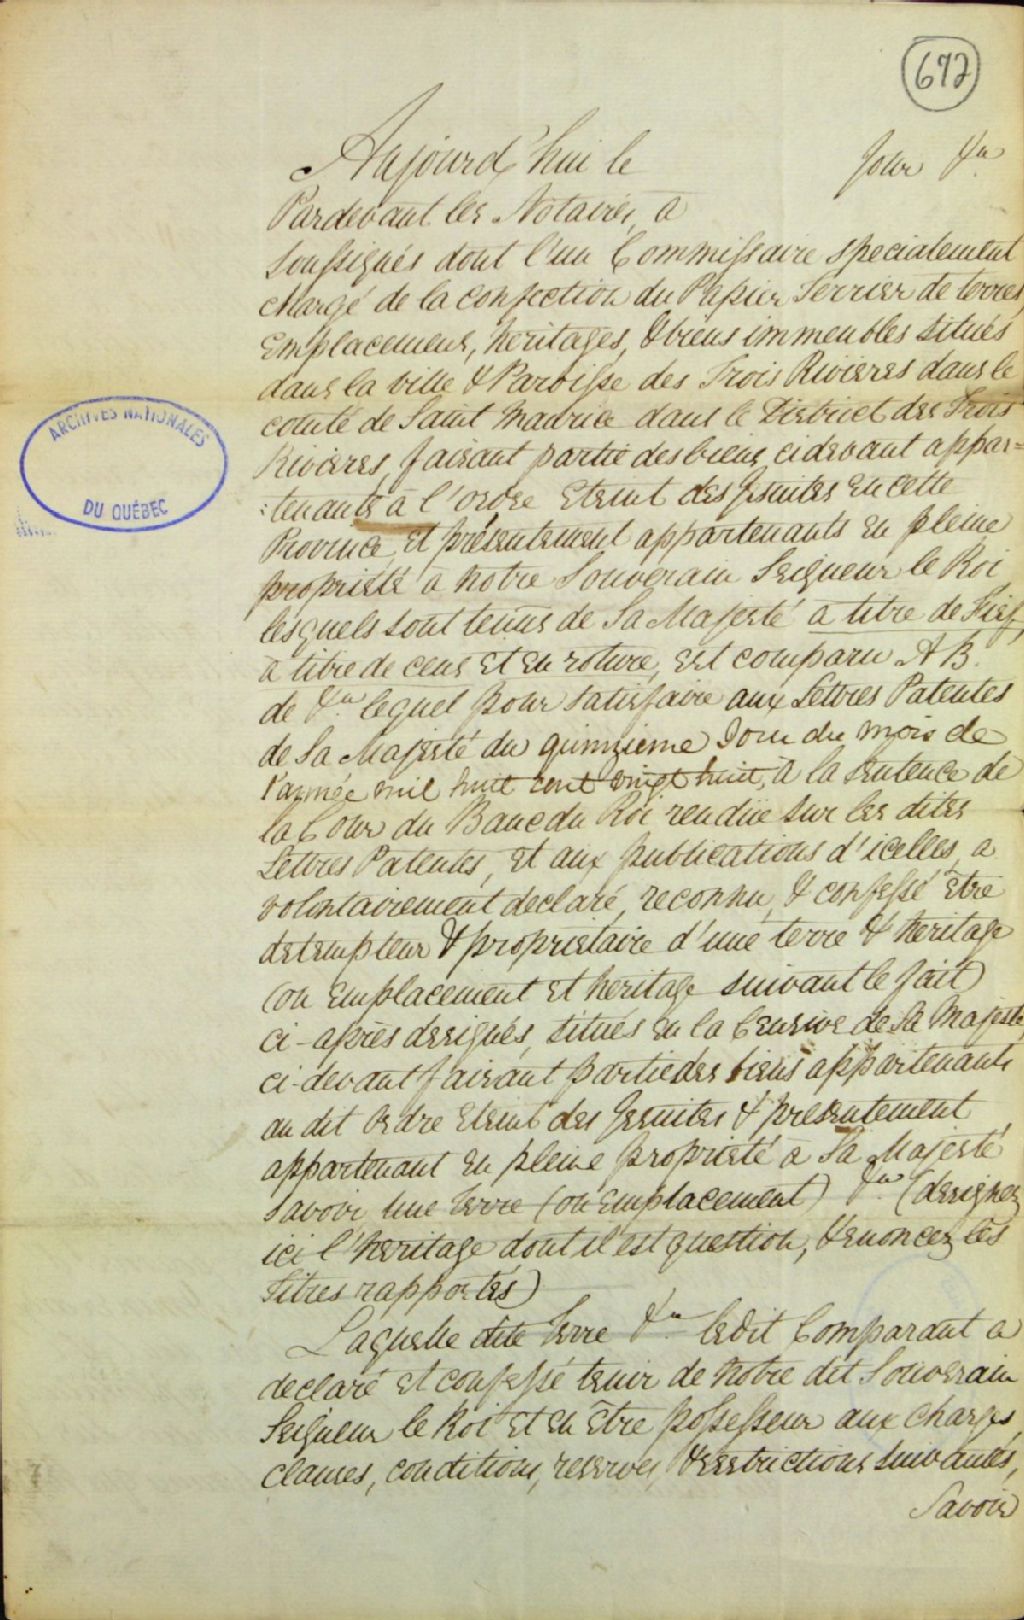 672
Aujourd'hui le jour &a.
Pardevant les Notaires, à
soussignés dont l'un Commissaire specialement
chargé de la confection du Papier Terrier de terres,
emplacemens, heritages, & biens immeubles situés
dans la ville & Paroisse des Trois Rivieres dans le
comté de Saint Maurice dans le District des Trois
Rivieres, faisant partie des biens ci devant appar=
:tenants à l'ordre eteint des Jesuites en cette
Province, et présentement appartenants en pleine
proprieté à notre Souverain Seigneur le Roi,
lesquels sont tenus de Sa Majesté à titre de Fief,
à titre de cens et en roture, est comparu A B.
de &a. lequel pour satisfaire aux Lettres Patentes
de Sa Majesté du quinzieme Jour du mois de
l'année mil huit cent vingt huit, à la sentence de
la Cour du Banc du Roi rendüe sur les dites
Lettres Patentes, et aux publications d'icelles, a
volontairement declaré, reconnu, & confessé être
detempteur & proprietaire d'une terre & heritage
(ou emplacement et heritage suivant le fait)
ci-après designés, situés en la Censive de Sa Majesté,
ci-devant faisant partie des biens appartenants
au dit ordre eteint des Jesuites & présentement
appartenant en pleine proprieté à Sa Majesté
savoir, une terre (ou emplacement) &a. (designez
ici l'heritage dont il est question, & enoncez les
titres rapportés)
Laquelle dite terre &a. ledit Comparant a
declaré et confessé tenir de notre dit Souverain
Seigneur le Roi et en être possesseur aux charges,
clauses, conditions, reserves, & restrictions suivantes,
Savoir
ARCHIVES NATIONALES
DU QUÉBEC